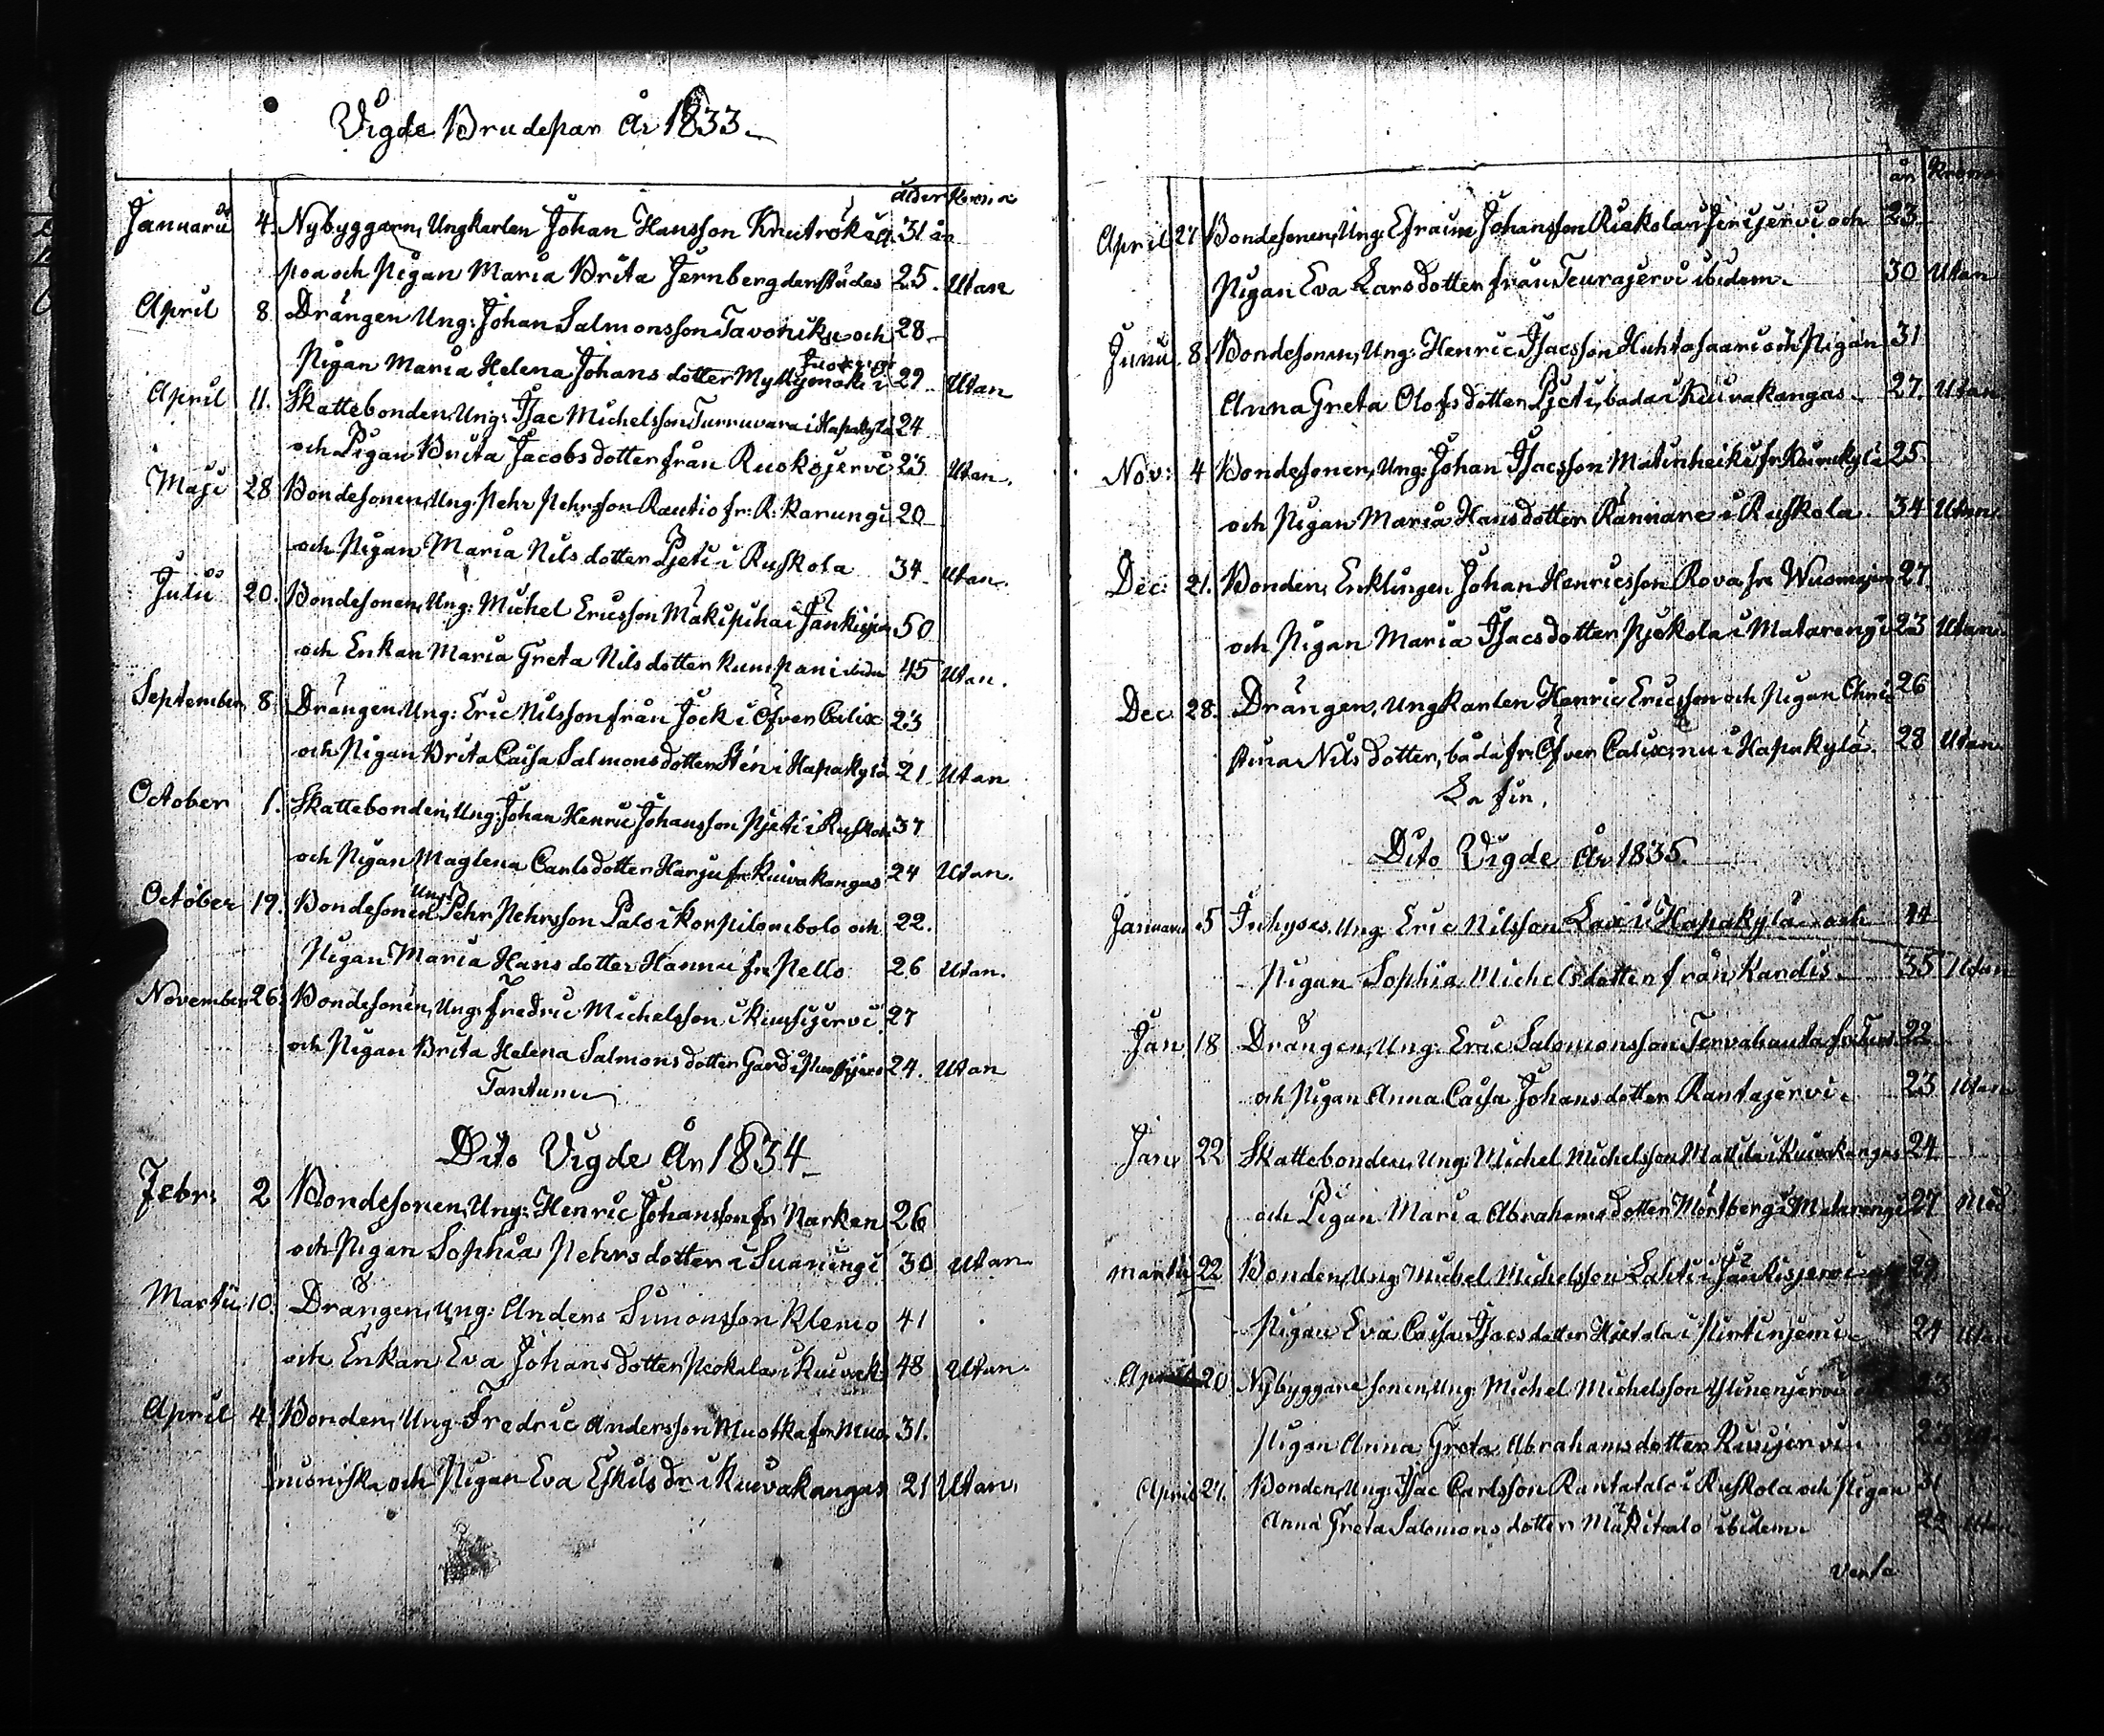 Vigde Brudepar År 1833
ålder Krona
Januarii 4. Nybyggarn, Ungkarlen Johan Hansson Knutrokau 31 år
poa och Pigan Maria Brita Jernberg derstädes 25. Utan
April 8 Drängen Ung: Johan Salmonsson Tavoniku och 28
Pigan Maria Helena Johans dotter Myllymäki i 29 Utan
April 11. Skattebonden, Ung: Isac Michelsson Turruvara i Hapakylä 24
och Pigan Brita Jacobs dotter från Ruokojervi 23 Utan.
Maji 28 Bondesonen, Ung: Pehr Pehrsson Rautio fr: K: Karungi 20
och Pigan Maria Nils dotter Pjeti i Ruskola 34 Utan.
Julii 20. Bondesonen, Ung: Michel Ericsson Mäkipiha i Jänkisjer 50
och Enkan Maria Greta Nils dotter Kumpani ibidm 45 Utan.
September 8 Drängen, Ung: Eric Nilsson från Jock i Öfver Calix 23
och Pigan Brita Caisa Salmons dotter Sten i Hapakylä 21 Utan
October 1. Skattebonden, Ung: Johan Henric Johansson Pjeti i Ruskola 37
och Pigan Maglena Carls dotter Harju fr: Kuivakangas 24 Utan.
October 19. Bondesonen Ung: Pehr Pehrsson Palo i Korpilombolo och 22.
Pigan Maria Hans dotter Hannu fr: Pello 26 Utan.
November 26. Bondesonen, Ung: Fredric Michelsson i Kuusijervi 27
och Pigan Brita Helena Salmons dotter Gard i 24. Utan
Tantum
Dito Vigde År 1834
Febr: 2 Bondesonen, Ung: Henric Johansson fr: Narken 26
och Pigan Sophia Pehrs dotter i Suaningi 30 Utan
Martii 10. Drängen, Ung: Anders Simonsson Klemo 41
och Enkan Eva Johans dotter Niskala i Kuivak: 48 Utan.
April 4 Bonden, Ung: Fredric Andersson Muotka fr: Muo 31.
nioniska och Pigan Eva Eskils dr i Kuivakangas 21 Utan.
år Krona
April 27 Bondesonen, Ung: Efraim Johansson Riekola i Jerijervi och 23
Pigan Eva Lars dotter från Teurajervi ibidem 30 Utan
Junii 8. Bondesonen, Ung: Henric Isacsson Huhtasaari och Pigan 31
Anna Greta Olofs dotter Pjeti, bada i Kuivakangas 27. Utan
Nov: 4 Bondesonen, Ung: Johan Isacsson Matinheiki fr: Kuivakylä 25.
och Pigan Maria Hans dotter Kännäre i Ruskola 34 Utan
Dec: 21. Bonden, Enklingen Johan Henricsson Rova fr: 27
och Pigan Maria Isacs dotter Niskala i Matarengi 23 Utan
Dec 28. Drängen, Ungkarlen Henric Ericsson och Pigan Chri 26
stina Nils dotter, båda fr: Öfver Calix, nu i Hapakylä 28 Utan
La fin.
Dito Vigde År 1835.
Januari 5 Inhyses, Ung: Eric Nilsson Lax i Hapakylä och 44
Pigan Sophia Michels dotter från Kardis 35 Utan
Jan 18 Drängen, Ung: Eric Salomonsson Tervahauta 22
och Pigan Anna Caisa Johans dotter Rantajervi. 23 Utan
Jan 22 Skattebonden, Ung: Michel Michelsson Mattila i Kuivakangas 24
och Pigan Maria Abrahams dotter Mörtberg i Matarengi 27 Med
Martii 22 Bonden, Ung: Michel Michelsson Lahti i Jänkisjervi 29
Pigan Eva Caisa Isacs dotter Hietala i Pirtiniemi 24 Utan
April 20 Nybyggare sonen, Ung: Michel Michelsson
Pigan Anna Greta Abrahams dotter Kuijervi
April 21. Bonden, Ung: Isac Carlsson Rantatalo i Ruskola och Pigan 31
Anna Greta Salomons dotter Mäkitalo ibidem 22 Utan
Verte